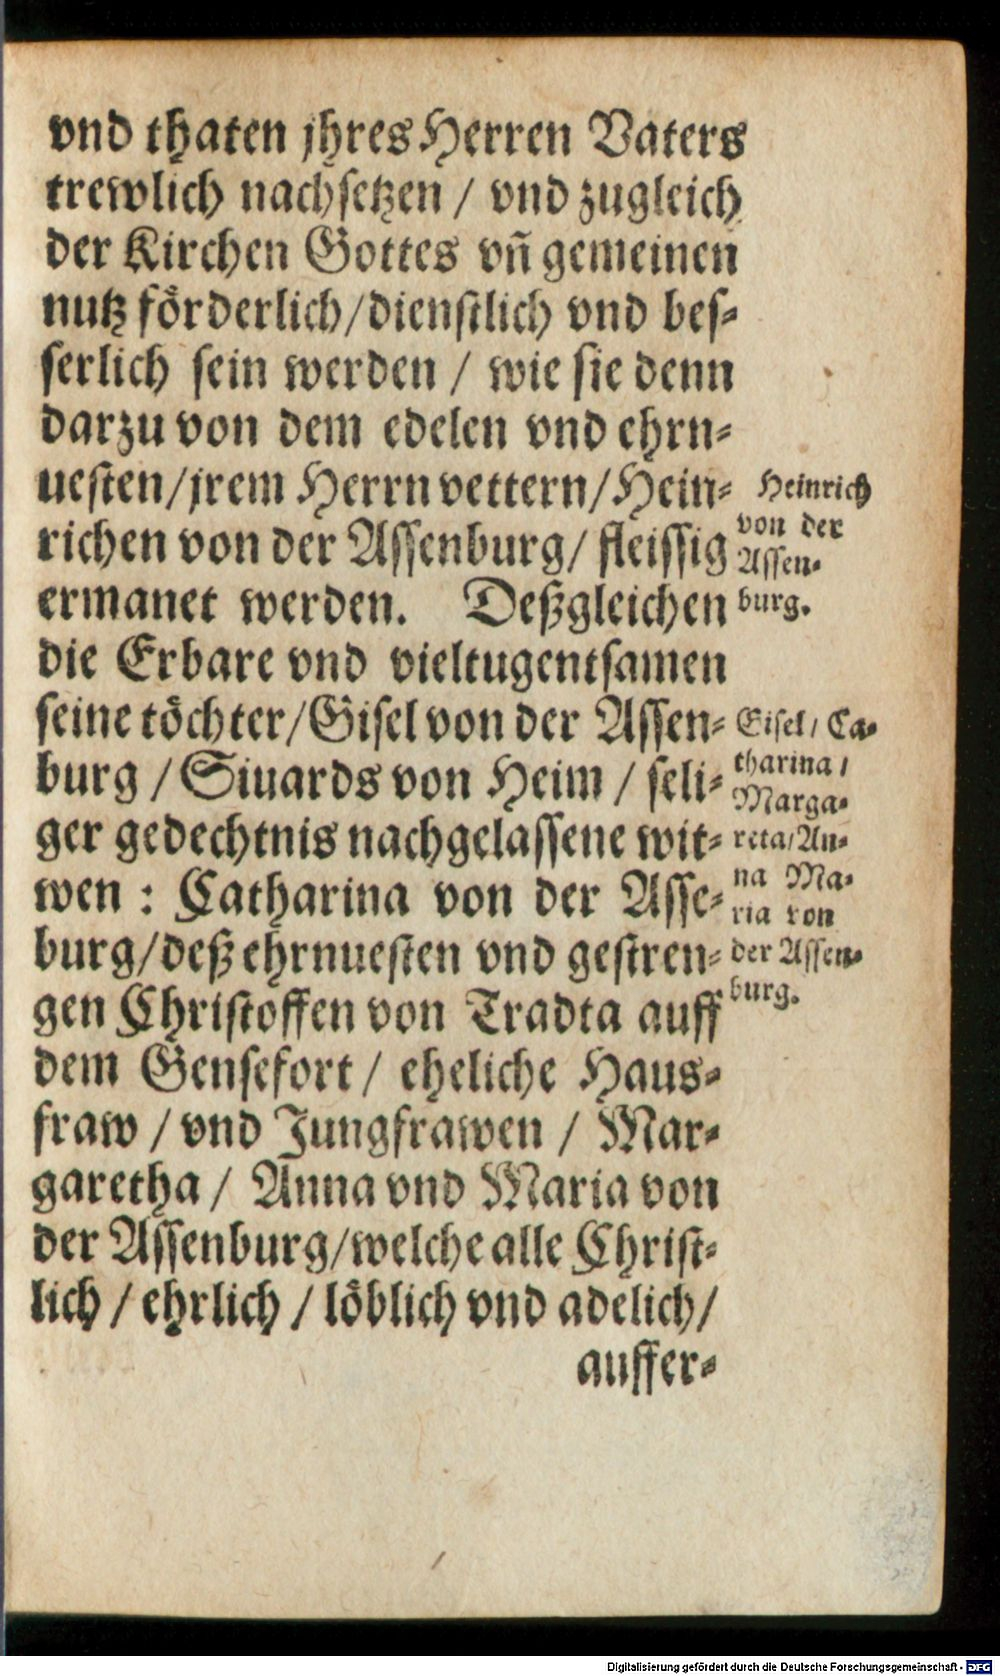 vnd thaten jhres Herren Vaters
trewlich nachsetzen / vnd zugleich
der Kirchen Gottes vñ gemeinen
nutz förderlich/dienstlich vnd bes-
serlich sein werden / wie sie denn
darzu von dem edelen vnd ehrn-
uesten/jrem Herrn vettern/Hein-
richen von der Assenburg/ fleissig
ermanet werden. Deßgleichen
die Erbare vnd vieltugentsamen
seine töchter/Gisel von der Assen-
burg / Siuards von Heim / seli-
ger gedechtnis nachgelassene wit-
wen : Catharina von der Asse-
burg/deß ehrnuesten vnd gestren-
gen Christoffen von Tradta auff
dem Gensefort / eheliche Haus-
fraw / vnd Jungfrawen / Mar-
garetha / Anna vnd Maria von
der Assenburg/welche alle Christ-
lich / ehrlich / löblich vnd adelich/
auffer-
Heinrich
von der
Assen-
burg.
Gisel/ Ca-
tharina /
Marga-
reta/An-
na Ma-
ria von
der Assen-
burg.
Digitalisierung gefördert durch die Deutsche Forschungsgemeinschaft - DFG